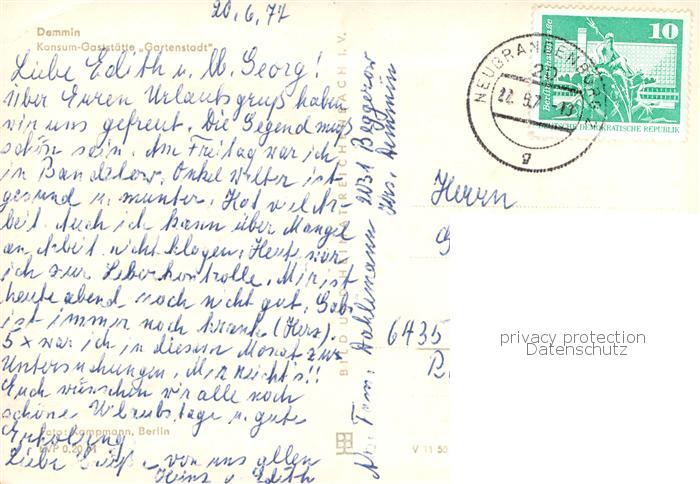 20.6.77
Demmin
Konsum-Gaststätte „Gartenstadt"
Liebe Edith u. Georg!
Über Euren Urlaubsgruß haben
wir uns gefreut. Die Gegend muß
schön sein. Am Freitag war ich
in Bandelow. Onkel Walter ist
gesund u. munter. Hat viel Ar-
beit. Auch ich kann über Mangel
an Arbeit nicht klagen. Heute war
ich zur Leberkontrolle. Mir ist
heute abend noch nicht gut. Gabi
ist immer noch krank (Herz).
5 x war ich in diesem Monat zur
Untersuchungen. Mir reicht's!!
Euch wünschen wir alle noch
schöne Urlaubstage u. gute
Erholung
Foto: Kampmann, Berlin
EVP 0,20 M
Liebe Grüße von uns allen
Heinz u. Edith
BILD UND HEIMAT REICHENBACH I. V.
2031 Beggerow
Krs. Demmin
V 11 50
NEUBRANDENBURG
20
22. 6.7
g
10
DEUTSCHE DEMOKRATISCHE REPUBLIK
Herrn
6435
privacy protection
Datenschutz